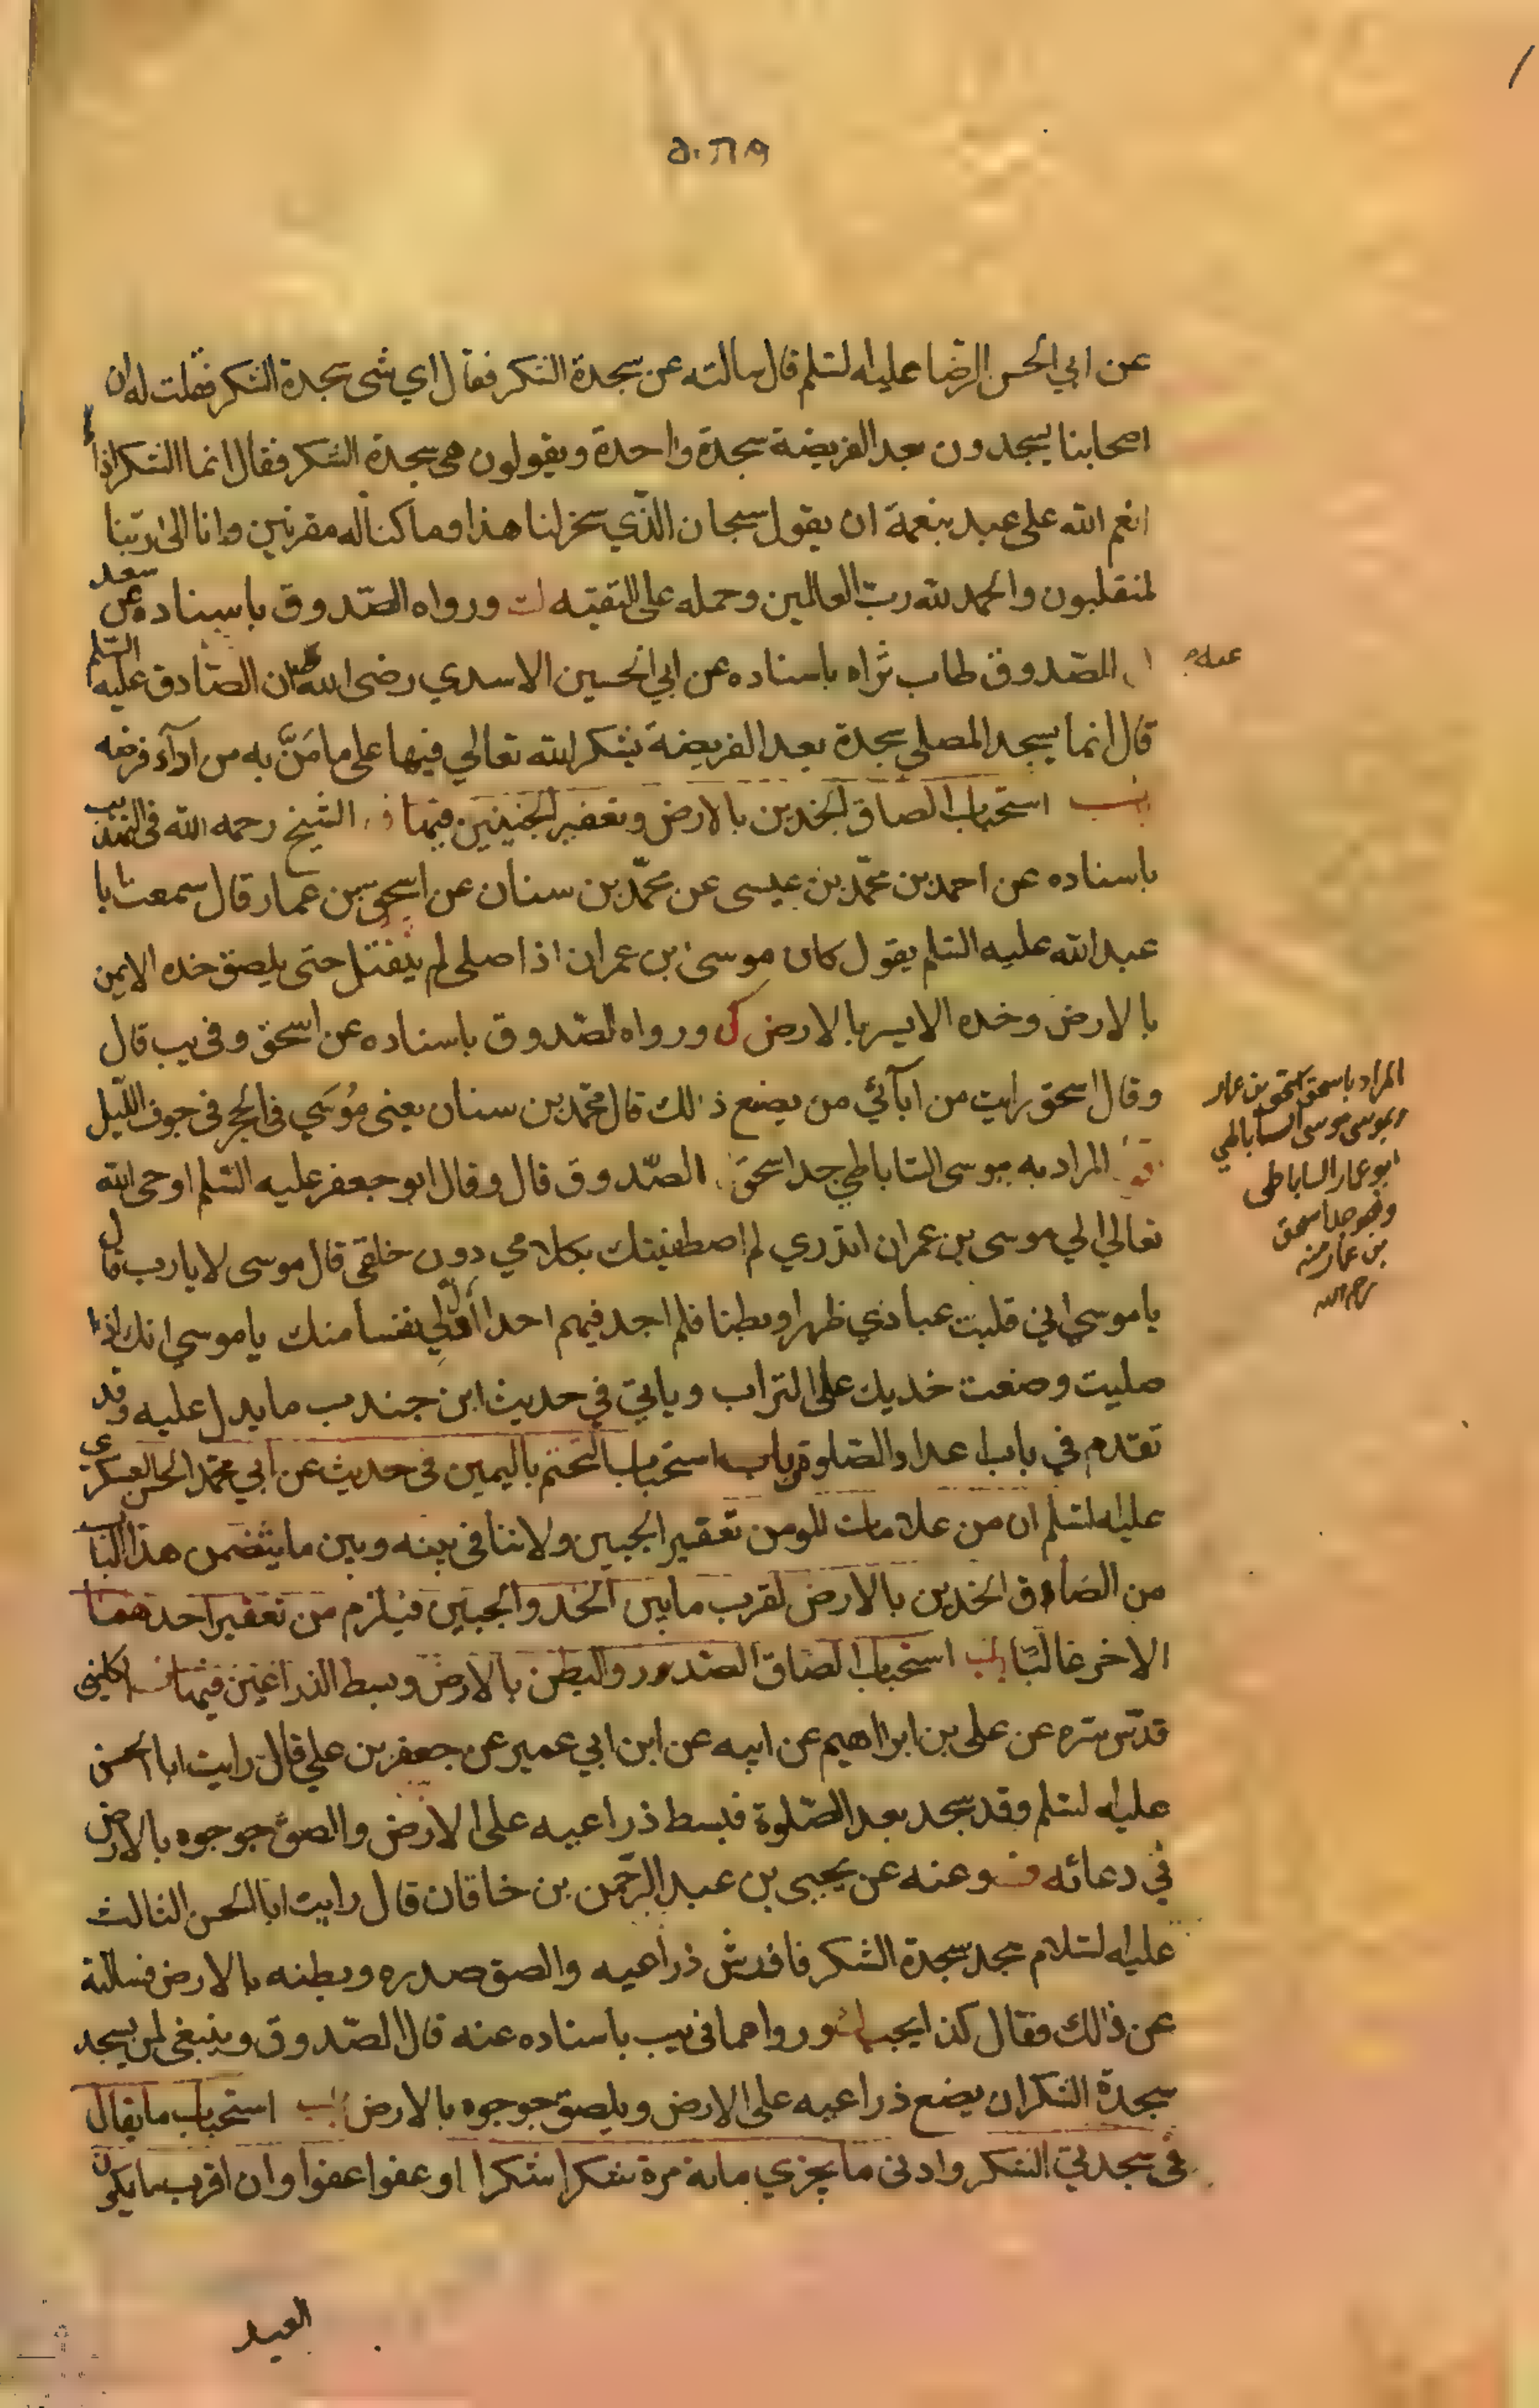 عن ابي الحسن الرضا عليه السلم قال سالته عن سجدة الشكر فقال اي شي سجدة الشكر فقلت له ان
اصحابنا يسجدون بعد الفريضة سجدة واحدة ويقولون هي سجدة الشكر فقال انما الشكر اذا
انعم الله على عبد بنعمة ان يقول سبحان الذي سخر لنا هذا وما كنا له مقرنين وانا الى ربنا
لمنقلبون والحمد لله رب العالمين وحمله على التقيه لت ورواه الصدوق باسناده عن سعد
الصدوق طاب ثراه باسناده عن ابي الحسين الاسدي رضى الله عنه ان الصادق عليه السلم
قال انما يسجد المصلي سجدة بعد الفريضة ليشكر الله تعالي فيها على ما مَنَّ به من اداء فرضه
استحباب الصاق الخدين بالارض وتعفير الجبينين فيهما الشيخ رحمه الله في التهذيب
باسناده عن احمد بن محمد بن عيسى عن محمد بن سنان عن اسحق بن عمار قال سمعت ابا
عبد الله عليه السلم يقول كان موسى بن عمران اذا صلى لم ينفتل حتى يلصق خده الايمن
بالارض وخده الايسر بالارض كل ورواه الصدوق باسناده عن اسحق وفي يب قال
وقال اسحق رايت من آبائي من يصنع ذلك قال محمد بن سنان يعنى مُوسَي في الحجر في جوف الليل
المراد به موسى الساباطي جد اسحق الصدوق قال وقال ابو جعفر عليه السلم اوحى الله
تعالي الي موسى بن عمران اتدري لم اصطفيتك بكلامي دون خلقي قال موسى لا يا رب قال
يا موسي اني قلبت عبادي ظهرا وبطنا فلم اجد فيهم احدا اذل لي نفسا منك يا موسي انك اذا
صليت وضعت خديك على التراب وياتي في حديث ابن جندب ما يدل عليه وقد
تقدم في باب اعداد الصلوة وباب استحباب التختم باليمين في حديث عن ابي محمد الحسن العسكري
عليه السلم ان من علامات المومن تعفير الجبين ولا تنافي بينه وبين ما يتضمن هذا الباب
من الصاق الخدين بالارض لقرب ما بين الخد والجبين فيلزم من تعفير احدهما
الاخر غالبا باب استحباب الصاق الصدور والبطن بالارض وبسط الذراعين فيهما الكليني
قدس سره عن على بن ابراهيم عن ابيه عن ابن ابي عمير عن جعفر بن علي قال رايت ابا الحسن
عليه السلم وقد سجد بعد الصلوة فبسط ذراعيه على الارض والصق جوجوه بالارض
في دعائه وعنه عن يحيى بن عبد الرحمن بن خاقان قال رايت ابا الحسن الثالث
عليه السلام سجد سجدة الشكر فافترش ذراعيه والصق صدره وبطنه بالارض فسالته
عن ذالك فقال كذا يجب ورواهما في يب باسناده عنه قال الصدوق وينبغي لمن يسجد
سجدة الشكر ان يضع ذراعيه على الارض ويلصق جوجوه بالارض باب استحباب ما يقال
في سجدتي الشكر وادنى ما يجزي مائة مرة شكرا شكرا او عفوا عفوا وان اقرب ما يكون
العبد
المراد باسحق اسحق بن عمار
وبموسى موسى الساباطي
ابو عمار الساباطي
وهو جد اسحق
بن عمار منه
رحمه الله